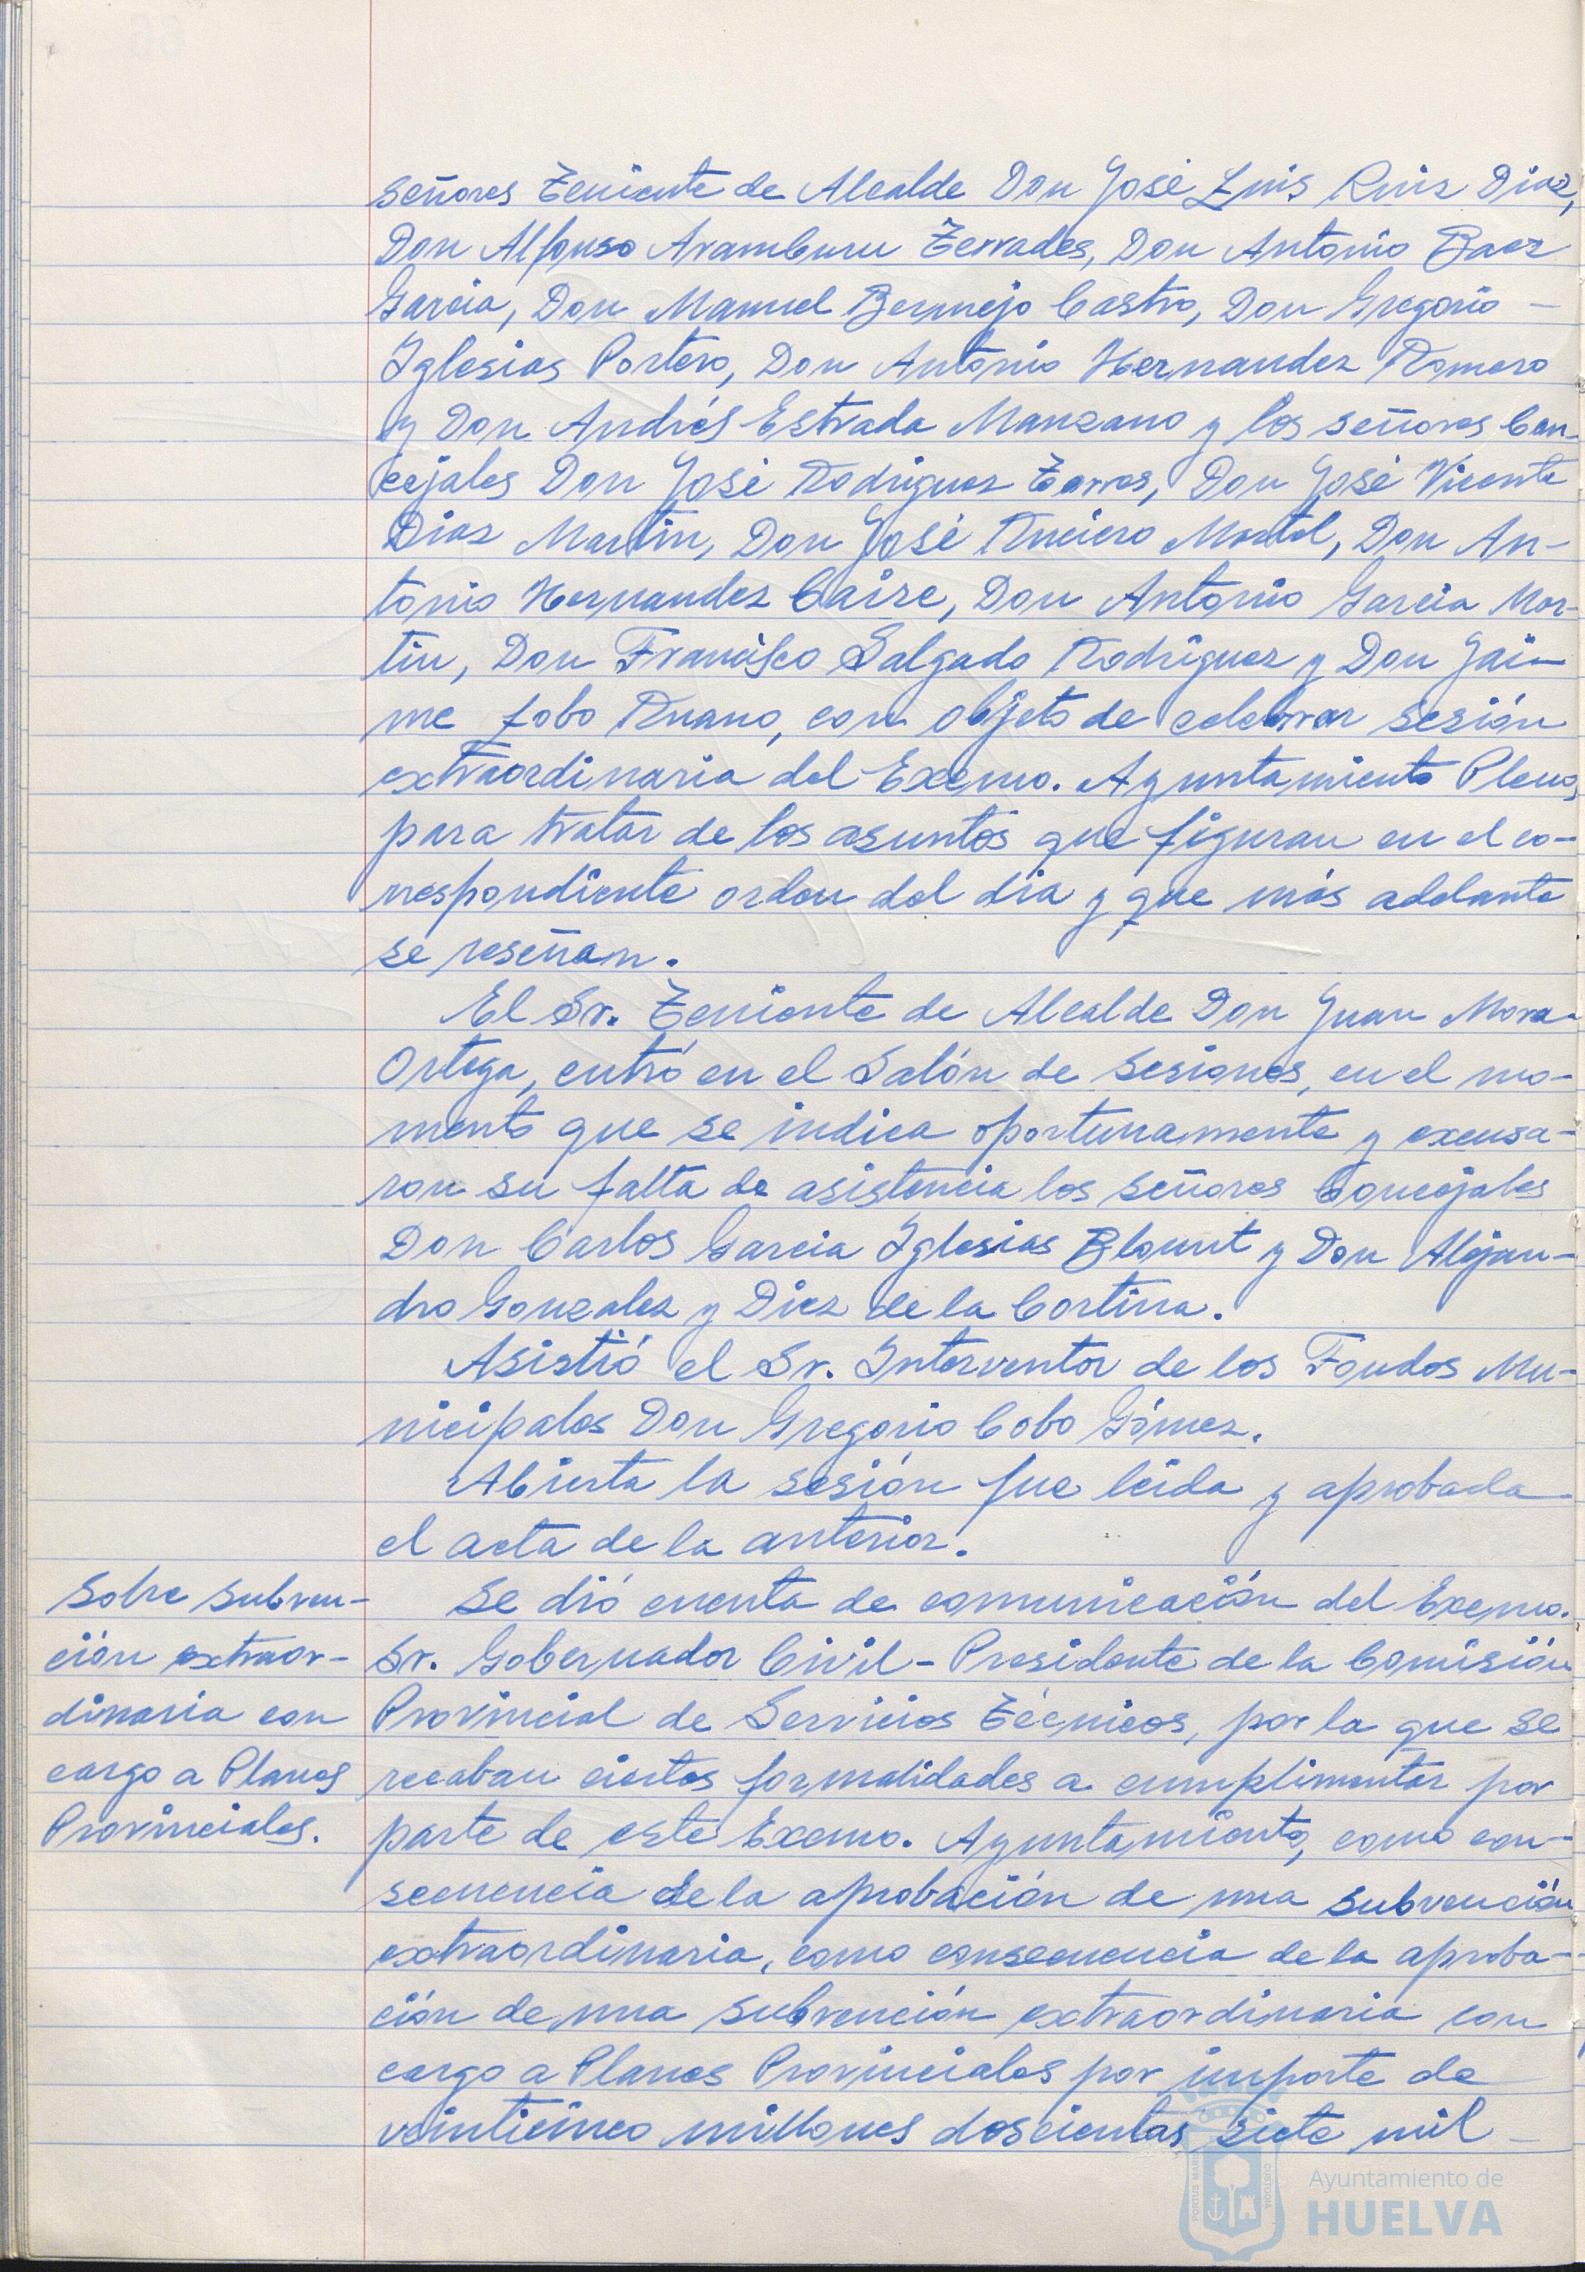 Señores Teniente de Alcalde Don José Luis Ruiz Diaz,
Don Alfonso Aramburu Terrades, Don Antonio Baez
Garcia, Don Manuel Bermejo Castro, Don Gregorio —
Iglesias Portero, Don Antonio Hernandez Romero
y Don Andrés Estrada Manzano y los señores Con-
cejales Don José Rodriguez Don José Vicente
Diaz Martin, Don José Don An-
tonio Hernandez Caire, Don Antonio Garcia Mar-
tin, Don Francisco Salgado Rodriguez y Don Jai-
me Lobo Ruano, con objeto de celebrar sesión
extraordinaria del Excmo. Ayuntamiento Pleno,
para tratar de los asuntos que figuran en el co-
rrespondiente orden del dia y que más adelante
se reseñan.
El Sr. Teniente de Alcalde Don Juan Mora-
Ortega, entró en el Salón de Sesiones, en el mo-
mento que se indica oportunamente y excusa-
ron su falta de asistencia los señores Concejales
Don Carlos Garcia Iglesias Blount y Don Alejan-
dro Gonzalez y Diez de la Cortina.
Asistió el Sr. Interventor de los Fondos Mu-
nicipales Don Gregorio Cobo Gómez.
Abierta la sesión fue leida y aprobada
el acta de la anterior.
Sobre subven-
ción extraor-
dinaria con
cargo a Planes
Provinciales.
Se dió cuenta de comunicación del Excmo.
Sr. Gobernador Civil - Presidente de la Comisión
Provincial de Servicios Técnicos, por la que se
recaban ciertas formalidades a cumplimentar por
parte de este Excmo. Ayuntamiento, como con-
secuencia de la aprobación de una subvención
extraordinaria, como consecuencia de la aproba-
ción de una subvención extraordinaria con
cargo a Planes Provinciales por importe de
veinticinco millones doscientas siete mil —
Ayuntamiento de
HUELVA